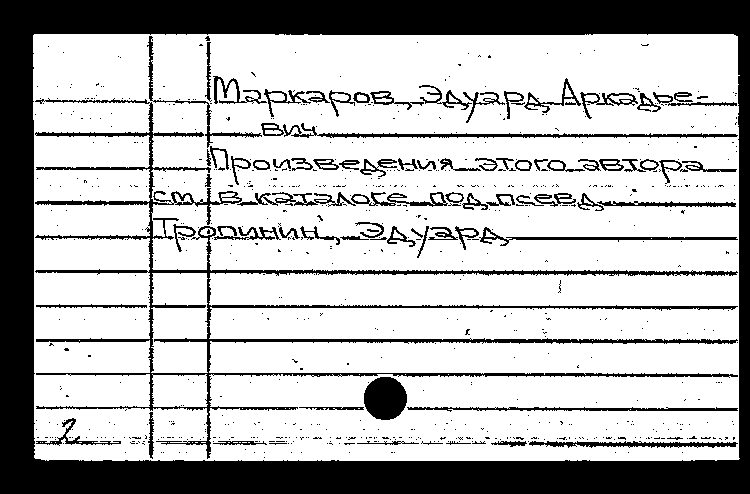 Маркаров, Эдуард Аркадье-
вич
Произведения этого автора
см. в каталоге под псевд.
Тропинин, Эдуард
2